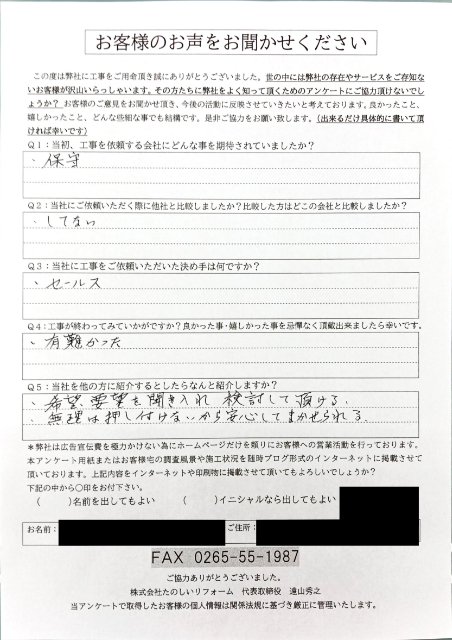 お客様のお声をお聞かせください
この度は弊社に工事をご用命頂き誠にありがとうございました。世の中には弊社の存在やサービスをご存知な
いお客様が沢山いらっしゃいます。その方たちに弊社をよく知って頂くためのアンケートにご協力頂けないでし
ょうか？ お客様のご意見をお聞かせ頂き、今後の活動に反映させていきたいと考えております。良かったこと、
嬉しかったこと、どんな些細な事でも結構です。是非ご協力をお願い致します。（出来るだけ具体的に書いて頂
ければ幸いです）
Q1：当初、工事を依頼する会社にどんな事を期待されていましたか？
・保守
Q2：当社にご依頼いただく際に他社と比較しましたか？比較した方はどこの会社と比較しましたか？
・してない
Q3：当社に工事をご依頼いただいた決め手は何ですか？
・セールス
Q4：工事が終わってみていかがですか？良かった事・嬉しかった事を忌憚なく頂戴出来ましたら幸いです。
・有難かった
Q5：当社を他の方に紹介するとしたらなんと紹介しますか？
・希望、要望を聞き入れ 検討して頂ける、
・無理は押し付けないから安心してまかせられる、
＊弊社は広告宣伝費を極力かけない為にホームページだけを頼りにお客様への営業活動を行っております。
本アンケート用紙またはお客様宅の調査風景や施工状況を随時ブログ形式のインターネットに掲載させて
頂いております。上記内容をインターネットや印刷物に掲載させて頂いてもよろしいでしょうか？
下記の中から○印をお付下さい。
（　　）名前を出してもよい　　（　　）イニシャルなら出してもよい
お名前：　　ご住所：
FAX 0265-55-1987
ご協力ありがとうございました。
株式会社たのしいリフォーム　代表取締役　遠山秀之
当アンケートで取得したお客様の個人情報は関係法規に基づき厳正に管理いたします。